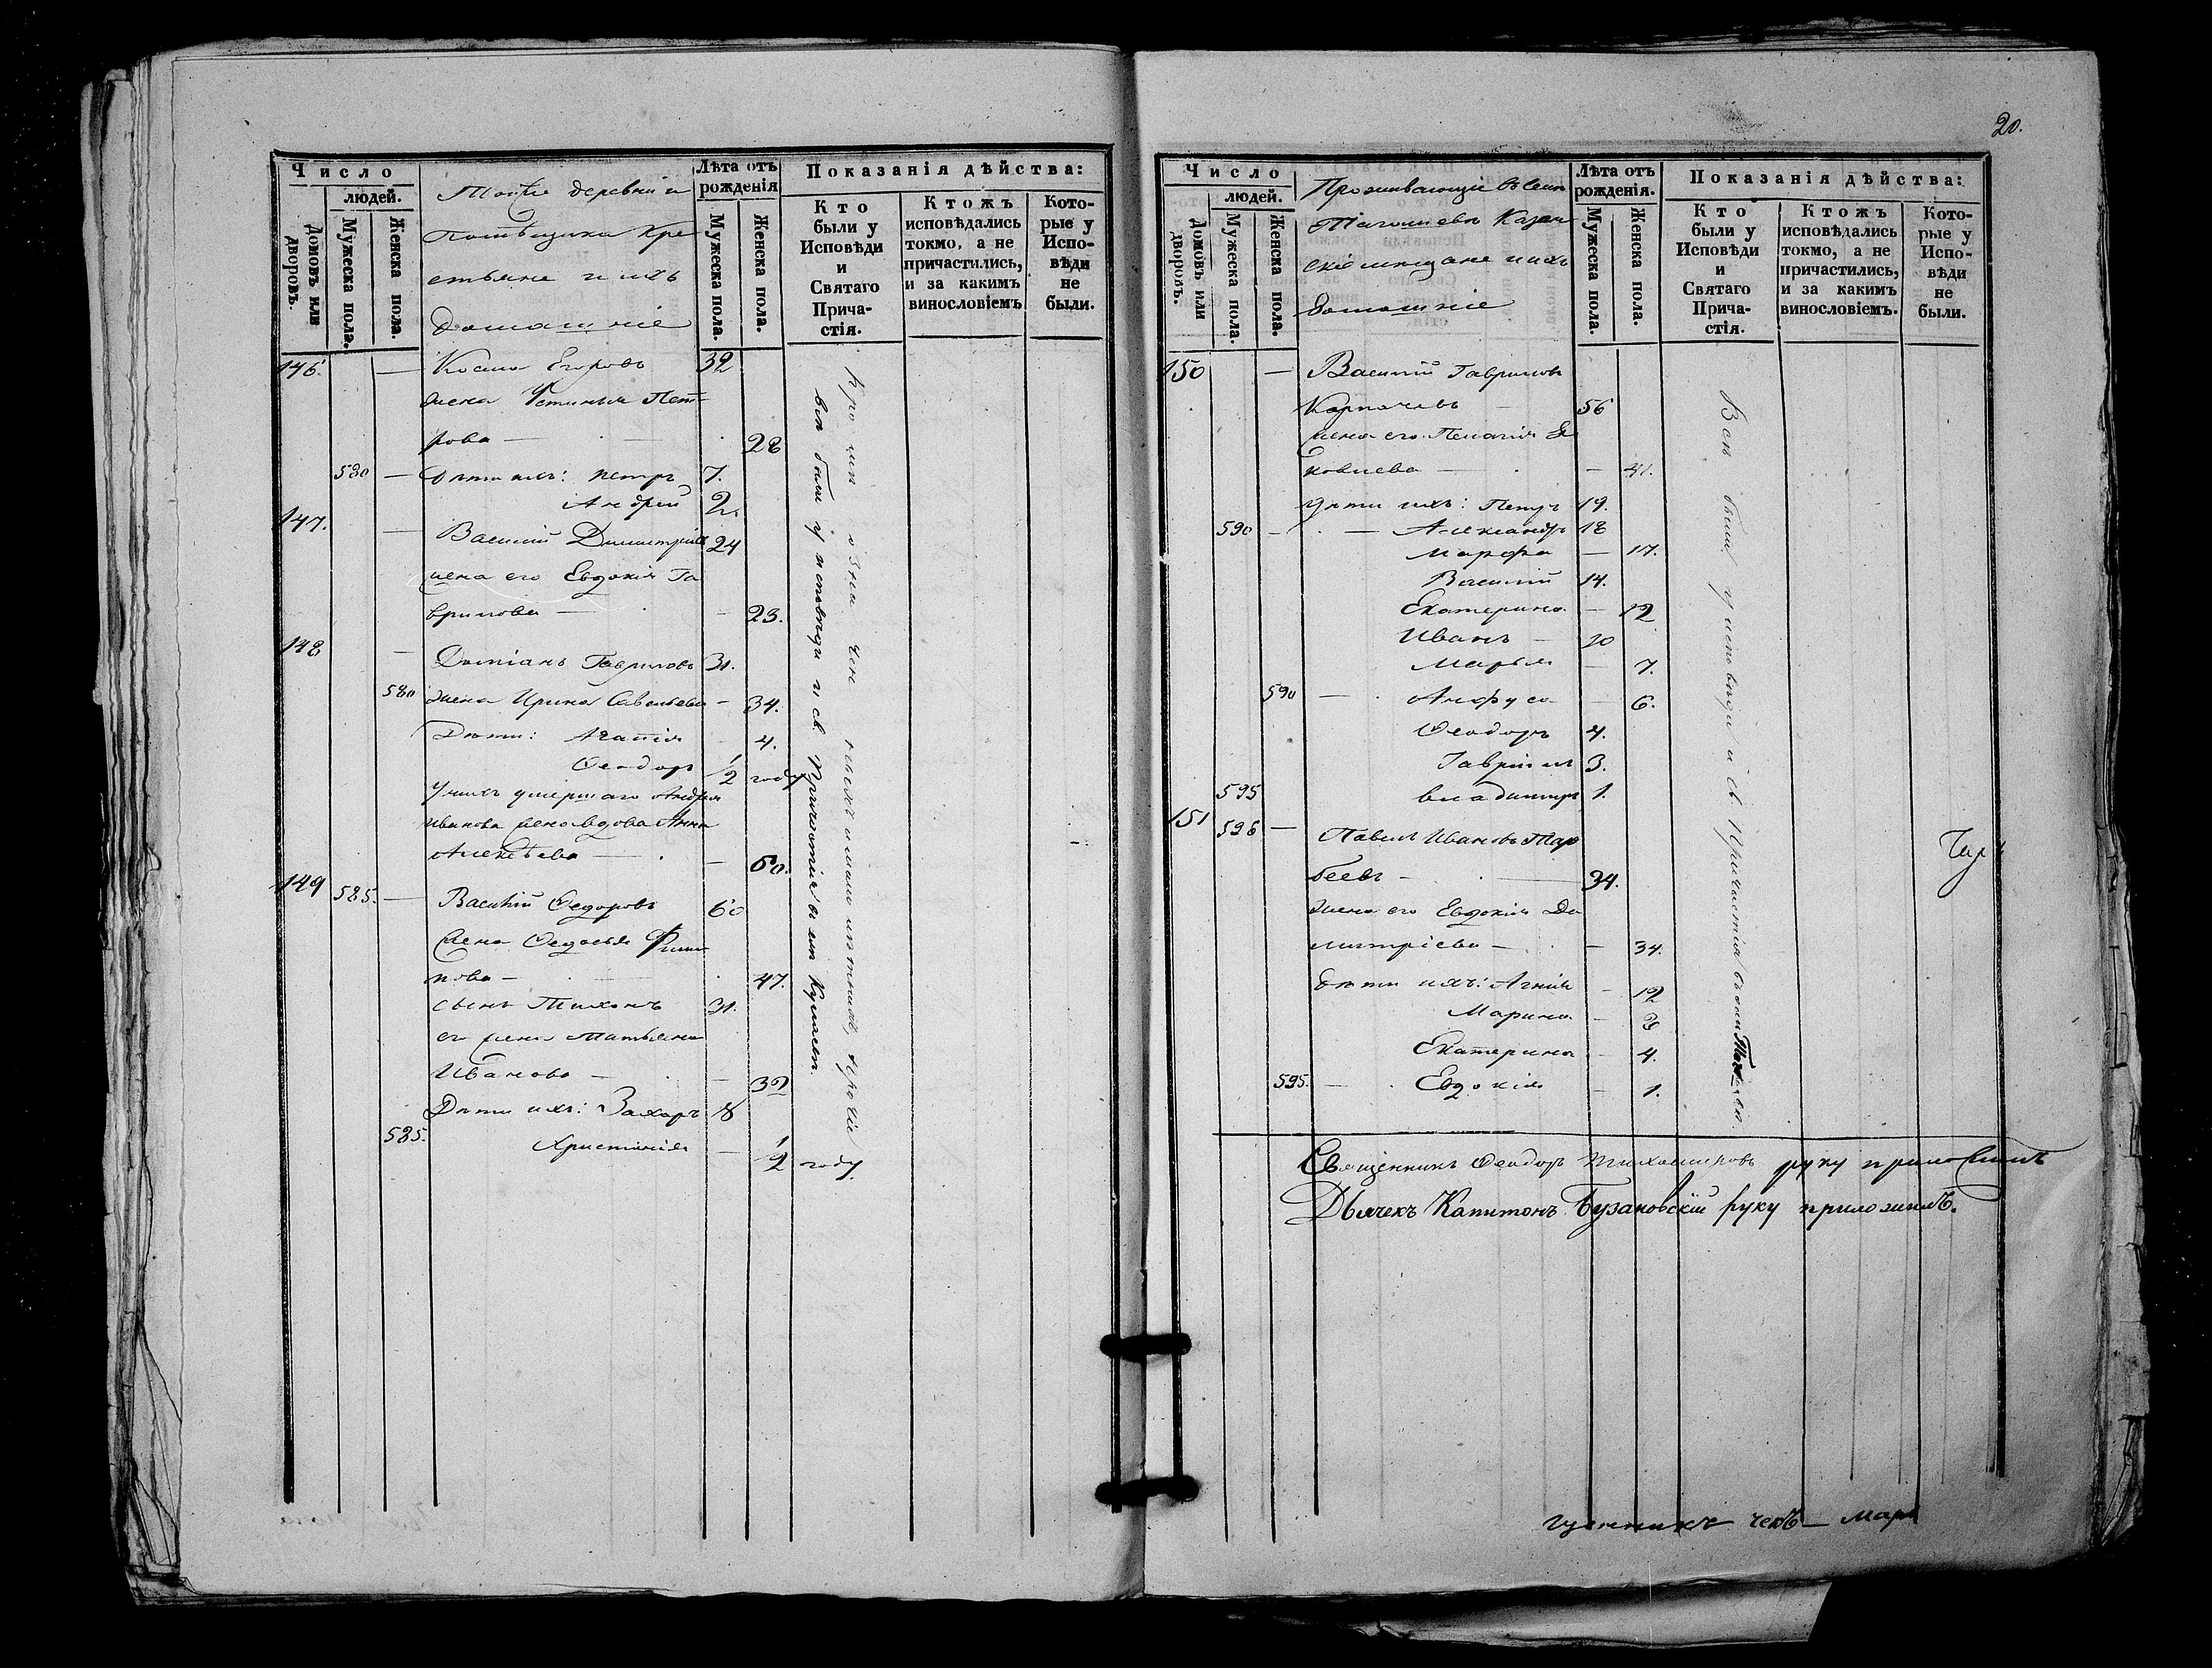 Число
людей.
Домовъ или дворовъ.
Мужеска пола.
Женска пола.
Тойже деревни и
Помѣщика Кре
стьяне и ихъ
домашніе
Лѣта отъ рожденія
Мужеска пола.
Женска пола.
Показанія дѣйства:
Кто были у Исповѣди и Святаго Причастія.
Ктожъ исповѣдались токмо, а не причастились, и за какимъ винословіемъ
Которые у Исповѣди не были.
146. — Косма Егоровъ 32
жена Устинья Пет
рова — 28
580 — Дѣти ихъ: Петръ 7.
Андрей 2.
147. — Василій Димитріевъ 24
жена его Евдокія Га
врилова — 23.
148 — Даміанъ Гавриловъ 31.
580 жена Ирина Савельева — 34.
Дѣти: Агапія 4.
Ѳеодоръ 1/2 году
У нихъ умершаго Андрея
Иванова жена вдова Анна
Алексѣева — 60.
149 585. — Василій Ѳедоровъ 60
жена Ѳедосья Фили
пова — 47.
сынъ Тихонъ 31.
его жена Татьяна
Иванова — 32
Дѣти ихъ: Захаръ 8
585. Христинія — 1/2 году.
вси были у исповѣди и св. Причастія в
20.
Число
людей.
Домовъ или дворовъ.
Мужеска пола.
Женска пола.
Проживающіе въ селѣ
Казан
скіе мещане и ихъ
домашніе
Лѣта отъ рожденія.
Мужеска пола.
Женска пола.
Показанія дѣйства:
Кто были у Исповѣди и Святаго Причастія.
Ктожъ исповѣдались токмо, а не причастились, и за какимъ винословіемъ.
Которые у Исповѣди не были.
150 — Василій Гавриловъ
Карпачевъ 56
жена его Пелагія Я
ковлева — — 41.
Дѣти ихъ: Петръ 19.
590 — Александръ 18
Марфа — 17.
Василій 14.
Екатерина — 12
Иванъ — 10
Марья — 7.
590 — Анфуса — 6.
Ѳеодоръ 4.
Гавріилъ 3.
595 Владимиръ 1.
151 596 — Павелъ Ивановъ Тар
беевъ — 34.
жена его Евдокія Ди
митріева — — 34.
дѣти ихъ: Агнія — 12
Марина —
Екатерина — 4.
595. — Евдокія — 1.
Всѣ были у исповѣди и св Причастія въ
Священникъ Ѳеодоръ Тихомировъ руку приложилъ
Дьячекъ Капитонъ Бузановскій руку приложилъ.